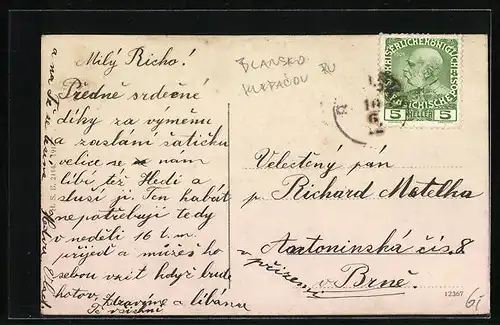 Milý Richo!
Předně srdečné
díky za výměnu
a zaslání šatičku
velice se nám
líbí též Hedi a
sluší jí. Ten kabát
nepotřebuji tedy
v neděli 16 t.m.
přijeď a můžeš ho
sebou vzít když bude
hotov. Zdravíme a líbáme
Tě všichni
BLANSKO
KLEPAČOV
KAISERLICHE KÖNIGLICHE ÖSTERREICHISCHE POST
5 HELLER 5
Velectěný pán
p. Richard Matelka
Antoninská čís. 8
v přízemí
v Brně.
12367
6,-